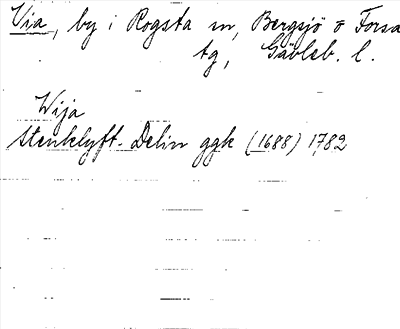 Via, by i Rogsta sn, Bergsjö o Forsa
tg, Gävleb. l.
Wija
Stenklyft. Delin ggk (1688) 1782